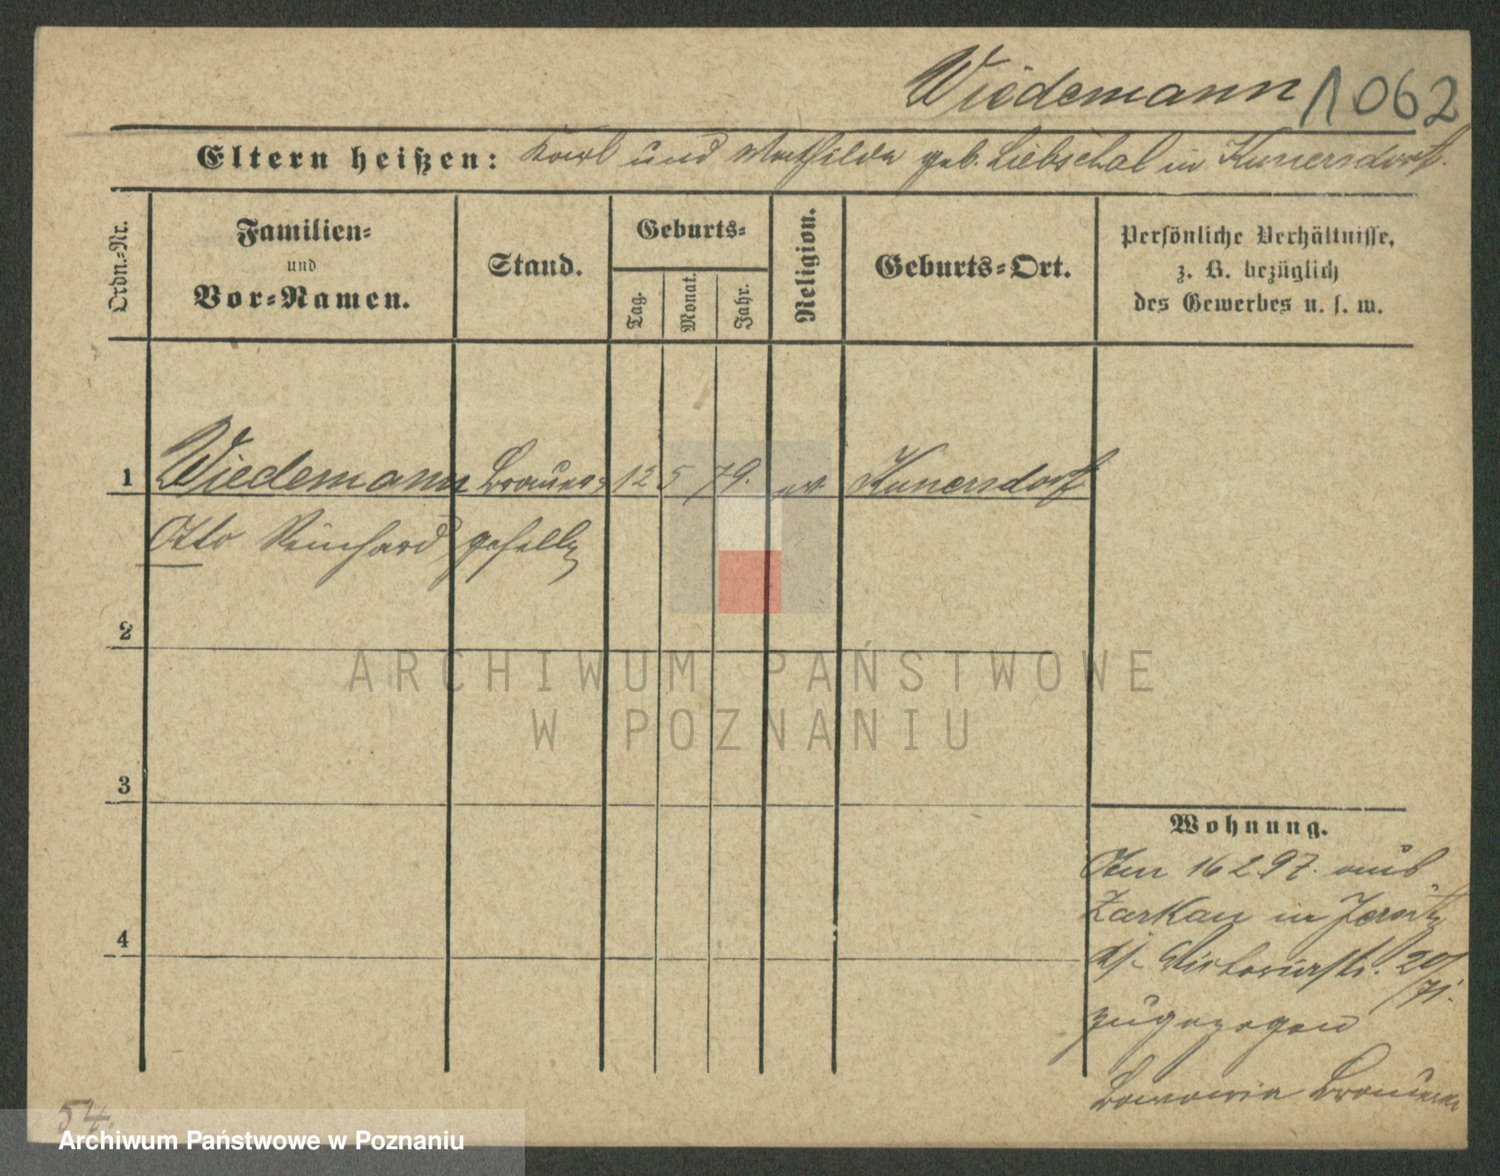 Wiedemann 1062
Eltern heißen: Karl und Mathilde geb. Liebschal in Kunersdorf.
Ordn.-Nr.
Familien-
und
Vor-Namen.
Stand.
Geburts-
Tag.
Monat.
Jahr.
Religion.
Geburts-Ort.
Persönliche Verhältnisse,
z. B. bezüglich
des Gewerbes u. s. w.
1 Wiedemann Brauer- 12 5 79. ev Kunersdorf
Otto Reinhard geselle
2
ARCHIWUM PAŃSTWOWE
W POZNANIU
3
Wohnung.
Am 16 2 97. aus
Zarkau in Jersitz
Victoriastr. 20/
71.
4
zugezogen
Bavaria Brauerei
54
Archiwum Państwowe w Poznaniu